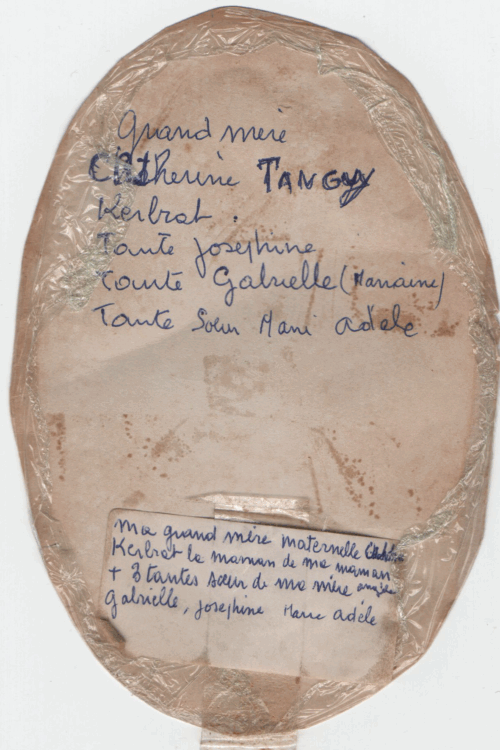 Grand mère
Catherine TANGUY
Kerbrat.
Tante Josephine
Tante Gabrielle (Marraine)
Tante Soeur Marie Adèle
Ma grand mère maternelle
Kerbrat la maman de ma maman
+ 3 tantes soeur de ma mère
Gabrielle, Josephine Marie Adèle